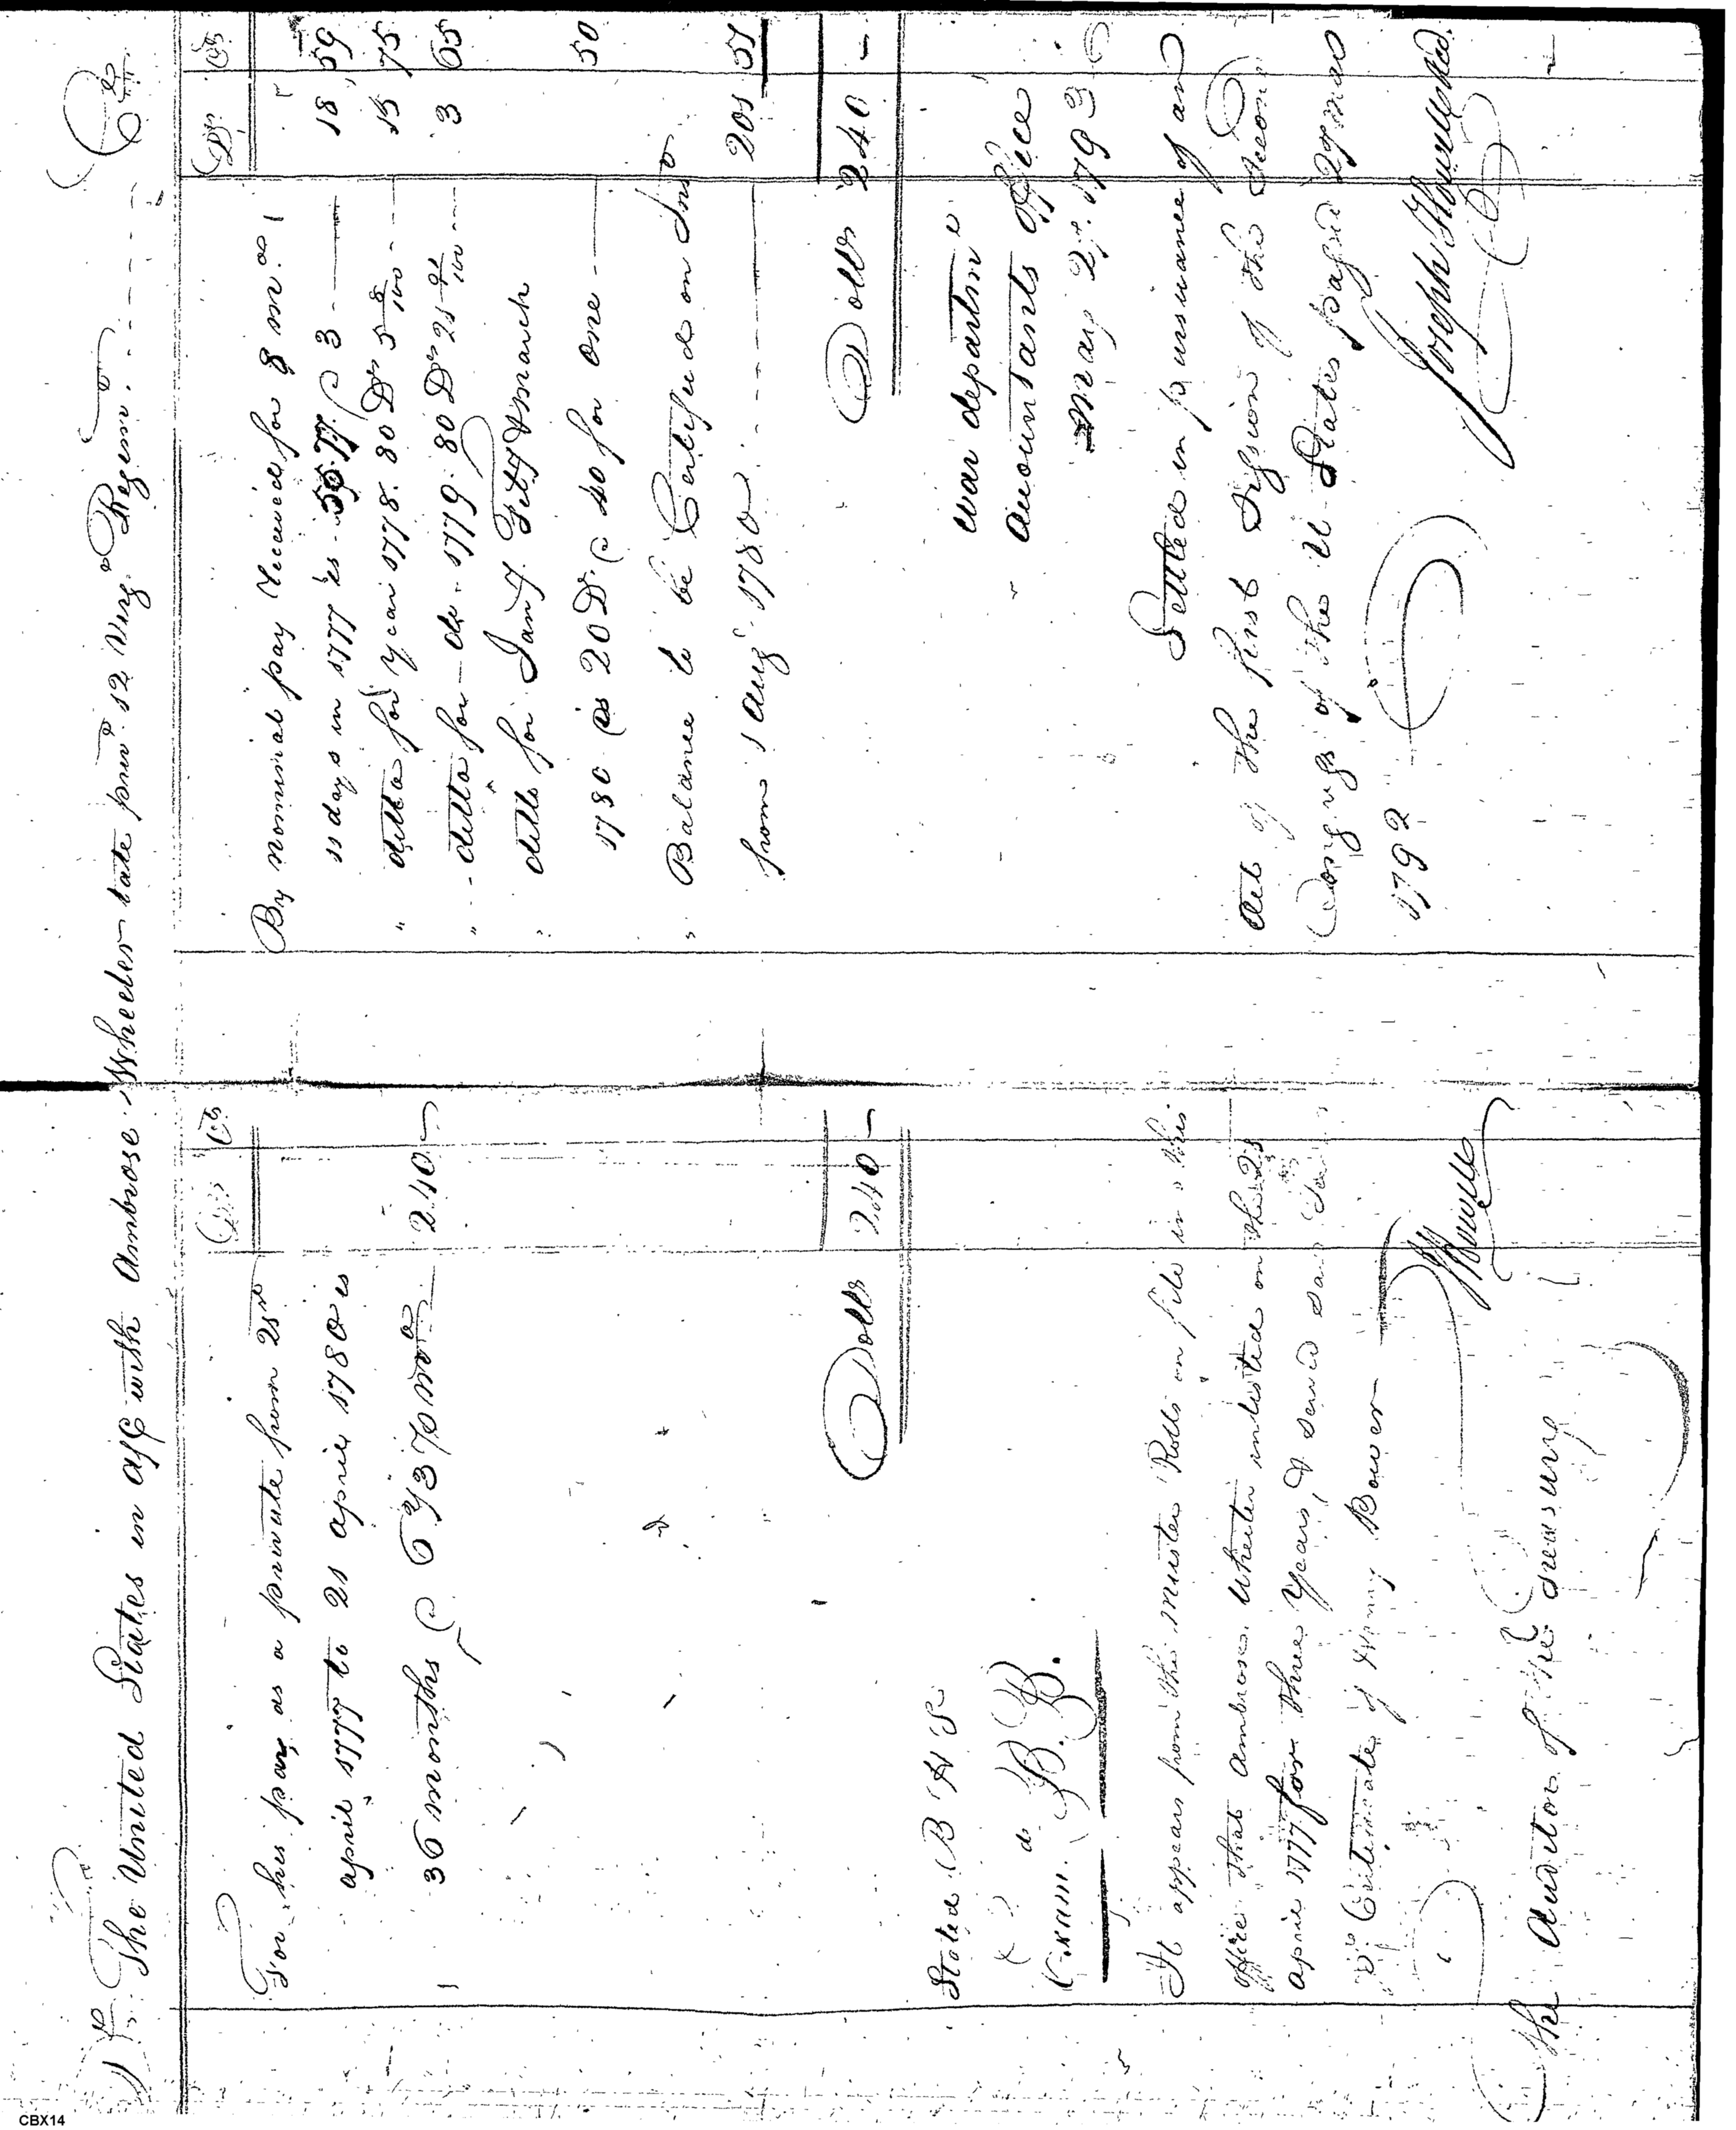 Dr The United States in a/c with Ambrose Wheeler late priv.t 12 Virg.a Regim.t Cr
Ds Cts
For his pay as a private from 21st
april 1777 to 21 april 1780 is
36 months @ 6 2/3 p mo 240 –
Dolls 240 –
Stated B H S
Exam.d B. B.
It appears from the muster Rolls on file in this
office that Ambrose Wheeler inlisted on the 21
april 1777 for three Years, & served
Certificate of Bower
JHowell
The Auditor of the Treasury
Ds Cts
By nominal pay received for 8 m.os
11 days in 1777 is 55.77 @ 3 18 59
" ditto for year 1778. 80 Ds 5 8/100 15 75
" ditto for do. 1779. 80 Ds 21 91/100 3 65
" ditto for Jany. Feby & March
1780 is 20 D. @ 40 for one 50
" Balance to be Certified on Int
from 1 Aug. 1780 201 51
Dolls 240 –
War departmt
Accountants Office
May 2d. 1793
Settled in pursuance of an
Act of the first Session of the Second
Congress of the U States passed 27 Mar
1792
Joseph Howell
CBX14